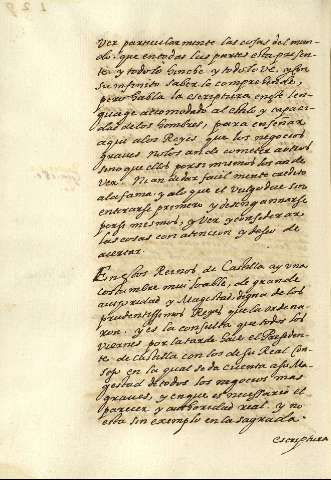 ver particularmente las cosas del mun
do, que en todas sus partes esta presen
te, y todo lo hinche y todo lo ve, y con
su infinito saber lo comprehende,
pero habla la escriptura en este len
guage accomodado al estilo y capaci
dad de los hombres, para enseñar
aqui a los Reyes, que los negocios
graves no los an de cometer a otros
sino que ellos por si mismos los an de
ver. Ni an de dar facilmente credito
a la fama, y a lo que el vulgo dice sin
enterarse primero y desengannarse
por si mesmos, y ver y considerar
las cosas con atencion y deseo de
acertar.
En estos Reinos de Castilla ay una
costumbre muy loable, de grande
autoridad y Magestad, digna de los
prudentissimos Reyes que la ordena
ron. y es la consulta que todos los
viernes por la tarde hace el Presiden
te de Castilla con los de su Real Con
sejo en la qual se da cuenta a su Ma
gestad de todos los negocios mas
graves, y en que es necessario el
parecer y authoridad real. y no
esta sin exemplo en la sagrada
escriptura